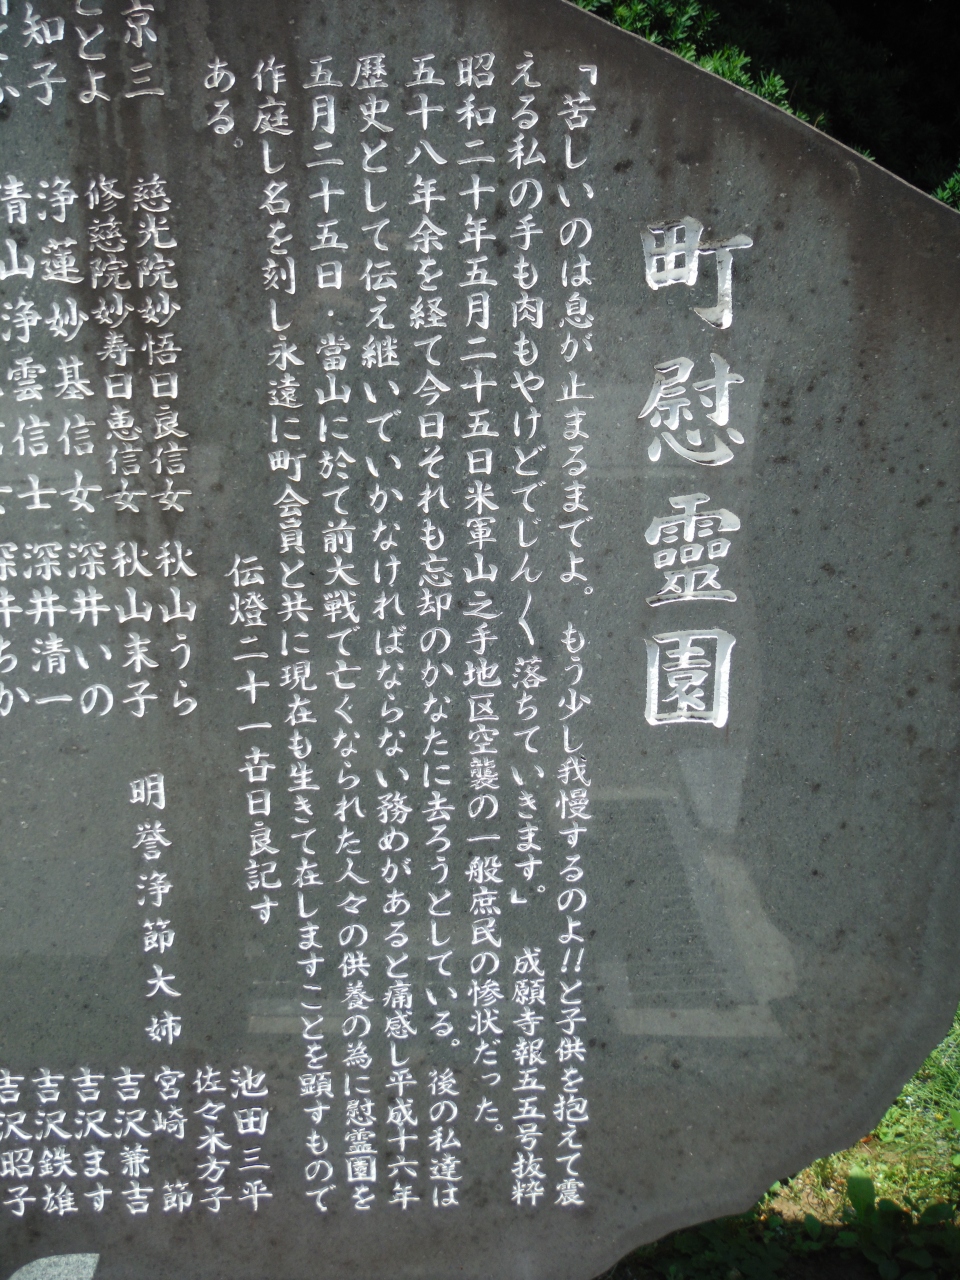 町慰靈園
「苦しいのは息が止まるまでよ。もう少し我慢するのよ!!と子供を抱えて震
える私の手も肉もやけどでじん〱落ちていきます。」 成願寺報五五号抜粋
昭和二十年五月二十五日米軍山之手地区空襲の一般庶民の惨状だった。
五十八年余を経て今日それも忘却のかなたに去ろうとしている。後の私達は
歴史として伝え継いでいかなければならない務めがあると痛感し平成十六年
五月二十五日・當山に於て前大戦で亡くなられた人々の供養の為に慰霊園を
作庭し名を刻し永遠に町会員と共に現在も生きて在しますことを顕すもので
ある。
伝燈二十一世日良記す
慈光院妙悟日良信女 秋山うら
修慈院妙寿日恵信女 秋山末子
浄蓮妙基信女 深井いの
清山浄雲信士 深井清一
深井ちか
京三
とよ
知子
明誉浄節大姉
池田三平
佐々木方子
宮崎節
吉沢兼吉
吉沢ます
吉沢鉄雄
吉沢昭子